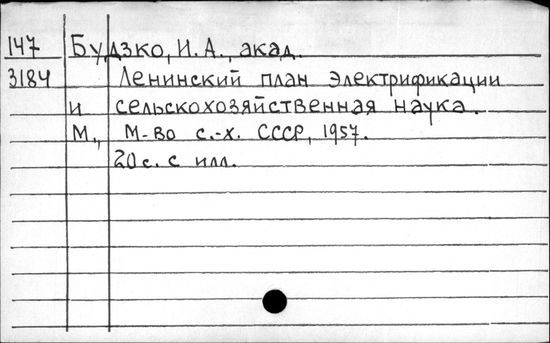 147 Будзко, И. А., акад.
3184 Ленинский план электрификации
и сельскохозяйственная наука.
М., М-во с.-х. СССР, 1957.
20 с. с илл.